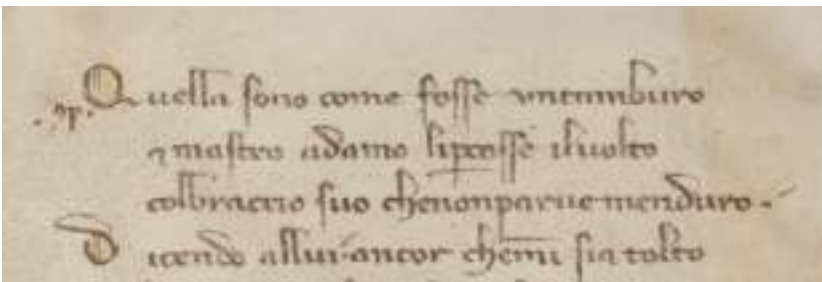 Quella sono come fosse untamburo
⁊ mastro adamo lipcosse iluolto
colbraccio suo chenonparue menduro.
Dicendo allui ancor chemi sia tolto